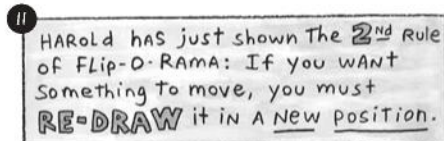 11
HAROLD HAS just shown The 2nd Rule
of FLIP-O-RAMA: If you WANT
Something to move, you must
RE-DRAW it in A New Position.